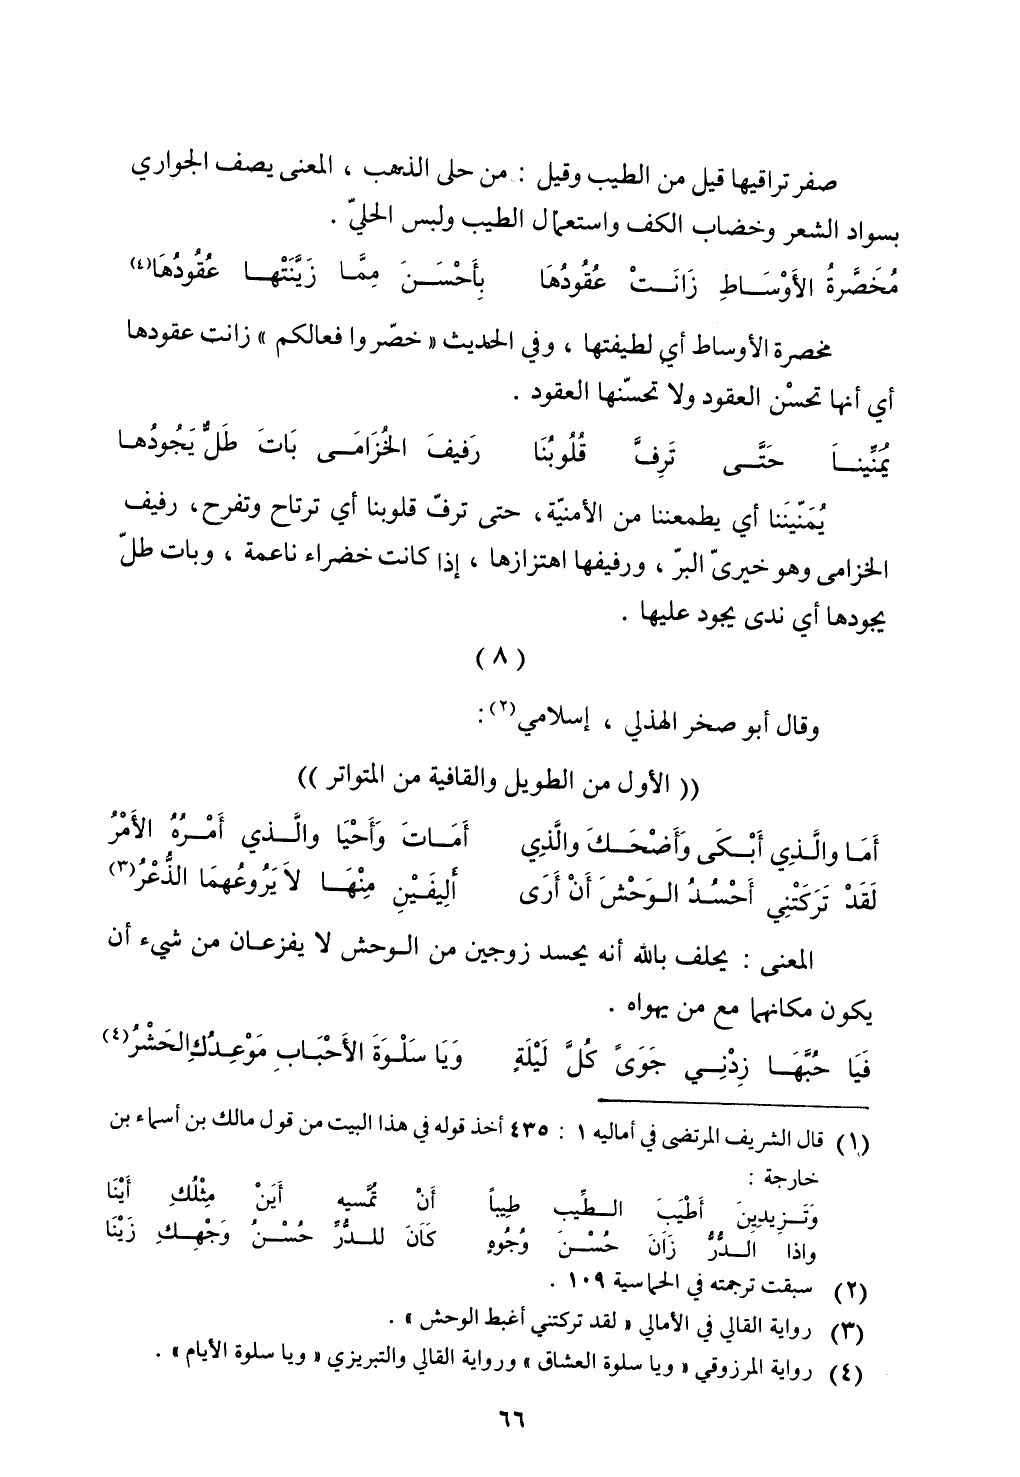 صفر تراقيها قيل من الطيب وقيل : من حلى الذهب ، المعنى يصف الجواري
بسواد الشعر وخضاب الكف واستعمال الطيب ولبس الحليّ .
مُخَصَّرةُ الأَوْسَاطِ زَانَتْ عقُودُهَا بِأَحْسَنَ مِمَّا زَيَّنَتْها عقُودُهَا(٤)
مخصرة الأوساط أي لطيفتها ، وفي الحديث « خصّروا فعالكم » زانت عقودها
أي أنها تحسْن العقود ولا تحسّنها العقود .
يُمَنِّيناَ حَتَّى تَرِفَّ قُلُوبُنَا رَفيفَ الخُزَامَى بَاتَ طَلٌّ يَجُودُها
يُمَنّيَننا أي يطمعننا من الأمنيّة، حتى ترفّ قلوبنا أي ترتاح وتفرح، رفيف
الخزامى وهو خيرىّ البرّ ، ورفيفها اهتزازها ، إذا كانت خضراء ناعمة ، وبات طلّ
يجودها أي ندى يجود عليها .
( ٨ )
وقال أبو صخر الهذلي ، إسلامي(٢):
(( الأول من الطويل والقافية من المتواتر ))
أَمَا والَّذِي أَبْكَى وَأَضْحَكَ والَّذِي أَمَاتَ وَأَحْيَا والَّذي أَمْرُهُ الأَمْرُ
لَقَدْ تَرَكَتْنِي أَحْسُدُ الوَحْشَ أَنْ أَرَى أَلِيفَيْنِ مِنْهَا لاَ يَرُوعُهمَا الذُّعْرُ(٣)
المعنى : يحلف بالله أنه يحسد زوجين من الوحش لا يفزعان من شيء أن
يكون مكانهما مع من يهواه .
فَيَا حُبَّهَا زِدْنِي جَوَىً كُلَّ لَيْلَةٍ وَيَا سَلْوَةَ الأَحْبَابِ مَوْعِدُكِ الحَشْرُ(٤)
(١) قال الشريف المرتضى في أماليه ١ : ٤٣٥ أخذ قوله في هذا البيت من قول مالك بن أسماء بن
خارجة :
وَتَزِيدِينَ أَطْيَبَ الطِّيب طِيباً أَنْ تَمَّسيه أَيَنْ مِثْلُكِ أَيْنَا
واذا الدُّرُّ زَانَ حُسْنَ وُجُوهٍ كَانَ للدُّرِّ حُسْنُ وَجْهِكِ زَيْنَا
(٢) سبقت ترجمته في الحماسية ١٠٩ .
(٣) رواية القالي في الأمالي « لقد تركتني أغبط الوحش » .
(٤) رواية المرزوقي « ويا سلوة العشاق » ورواية القالي والتبريزي « ويا سلوة الأيام » .
٦٦